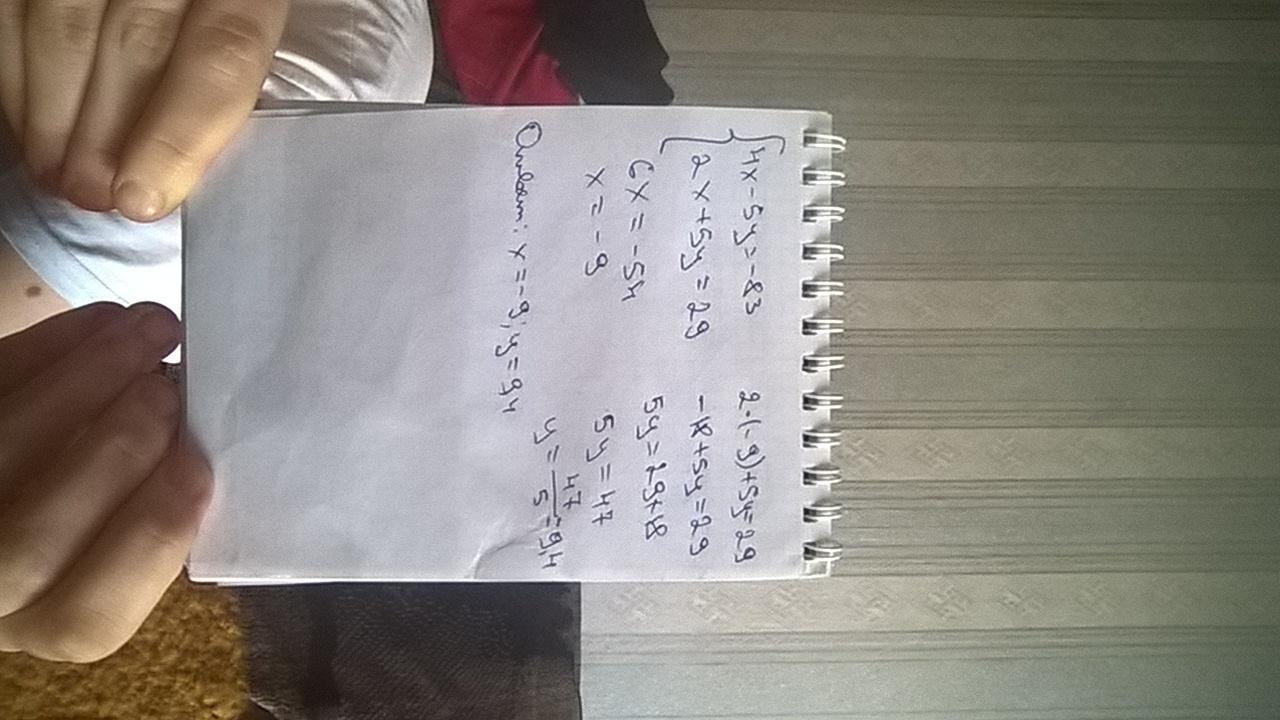 4x-5y=-83
2x+5y=29
6x=-54
x=-9
Ответ: x=-9; y=9,4
2·(-9)+5y=29
-18+5y=29
5y=29+18
5y=47
y=47/5=9,4